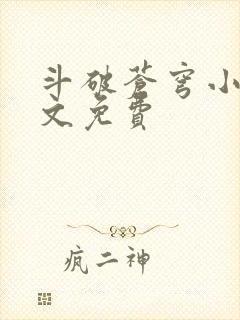 斗破苍穹小
文免费
疯二神